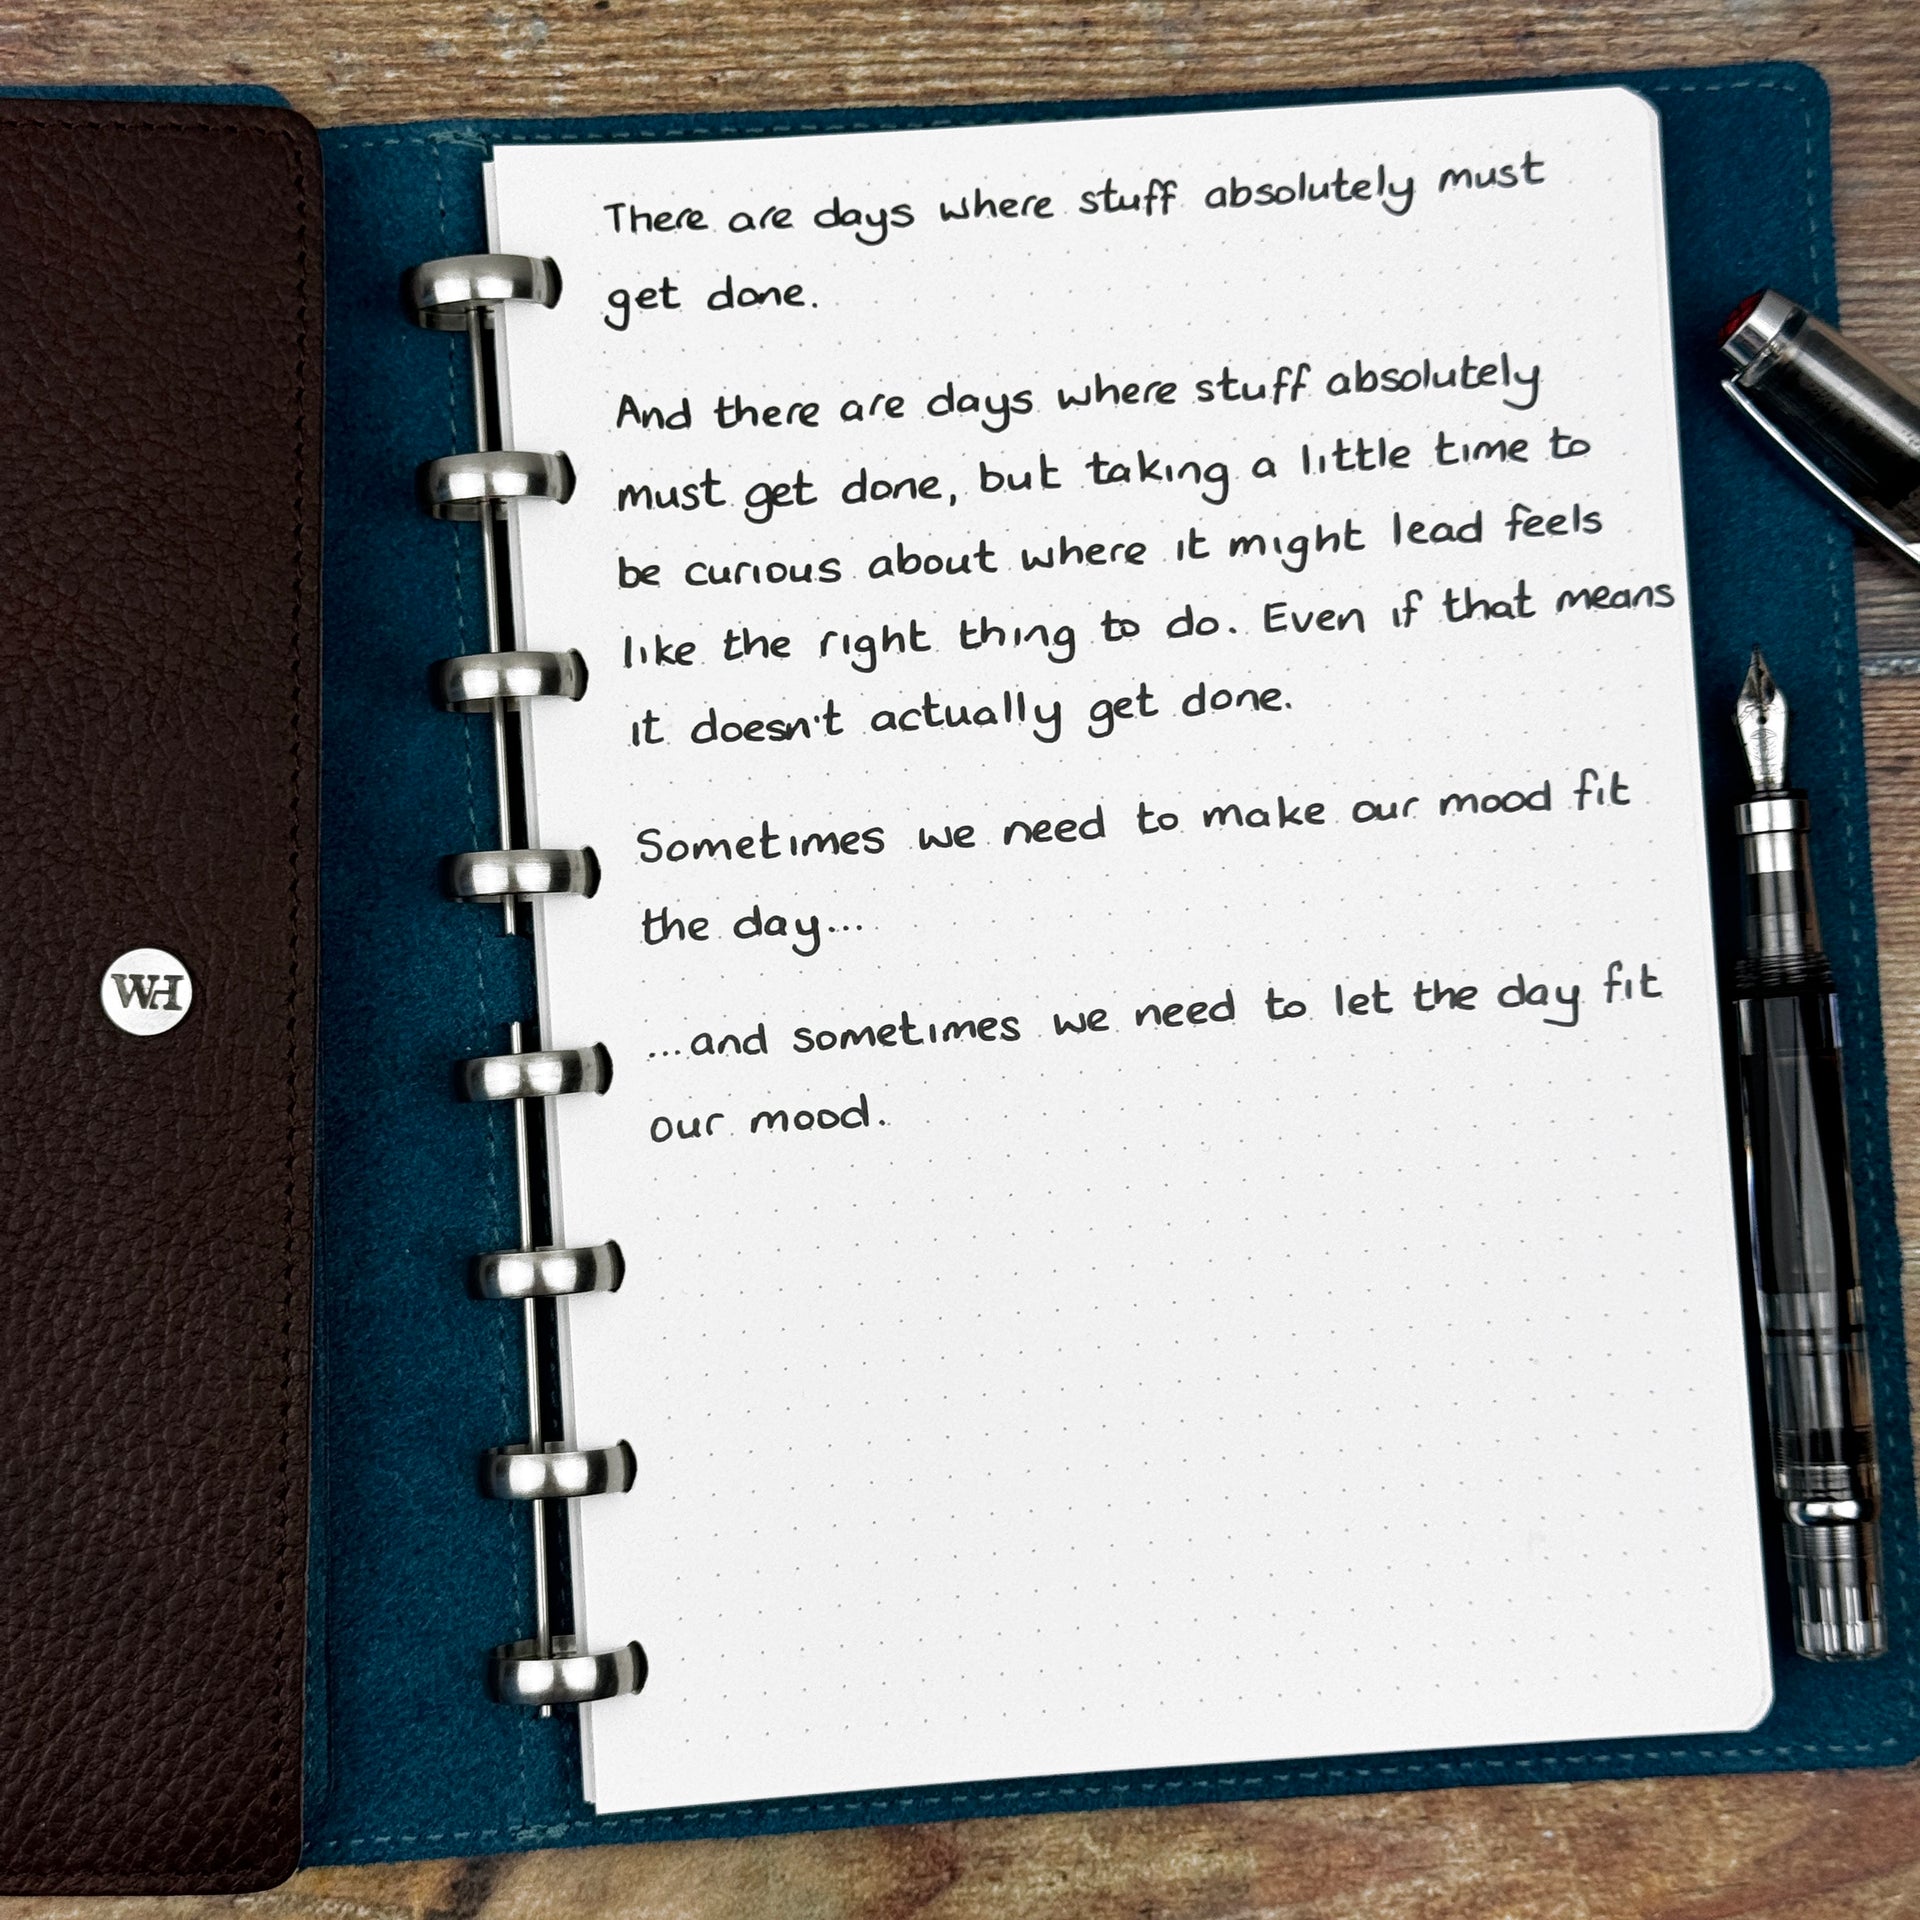 There are days where stuff absolutely must
get done.
And there are days where stuff absolutely
must get done, but taking a little time to
be curious about where it might lead feels
like the right thing to do. Even if that means
it doesn't actually get done.
Sometimes we need to make our mood fit
the day...
...and sometimes we need to let the day fit
our mood.
WH